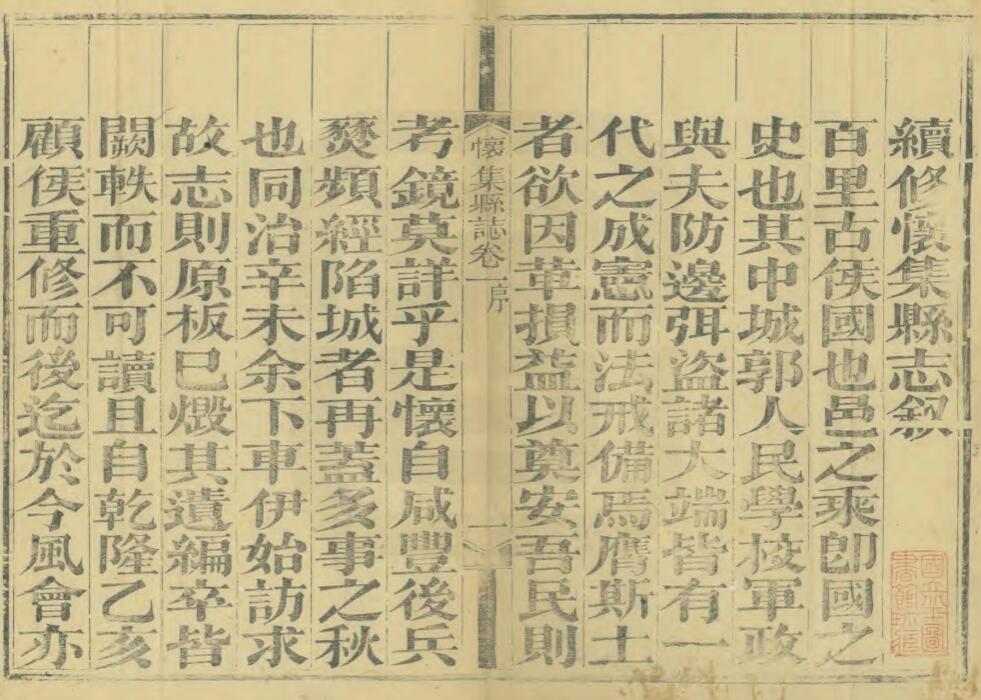 續修懷集縣志叙
百里古侯國也邑之乘卽國之
史也其中城郭人民學校軍政
與夫防邊弭盜諸大端皆有一
代之成憲而法戒備焉膺斯土
者欲因革損益以奠安吾民則
懷集縣誌卷一序
一
考鏡莫詳乎是懷自咸豐後兵
燹頻經陷城者再蓋多事之秋
也同治辛未余下車伊始訪求
故志則原板已燬其遺編卒皆
闕軼而不可讀且自乾隆乙亥
顧侯重修而後迄於今風會亦